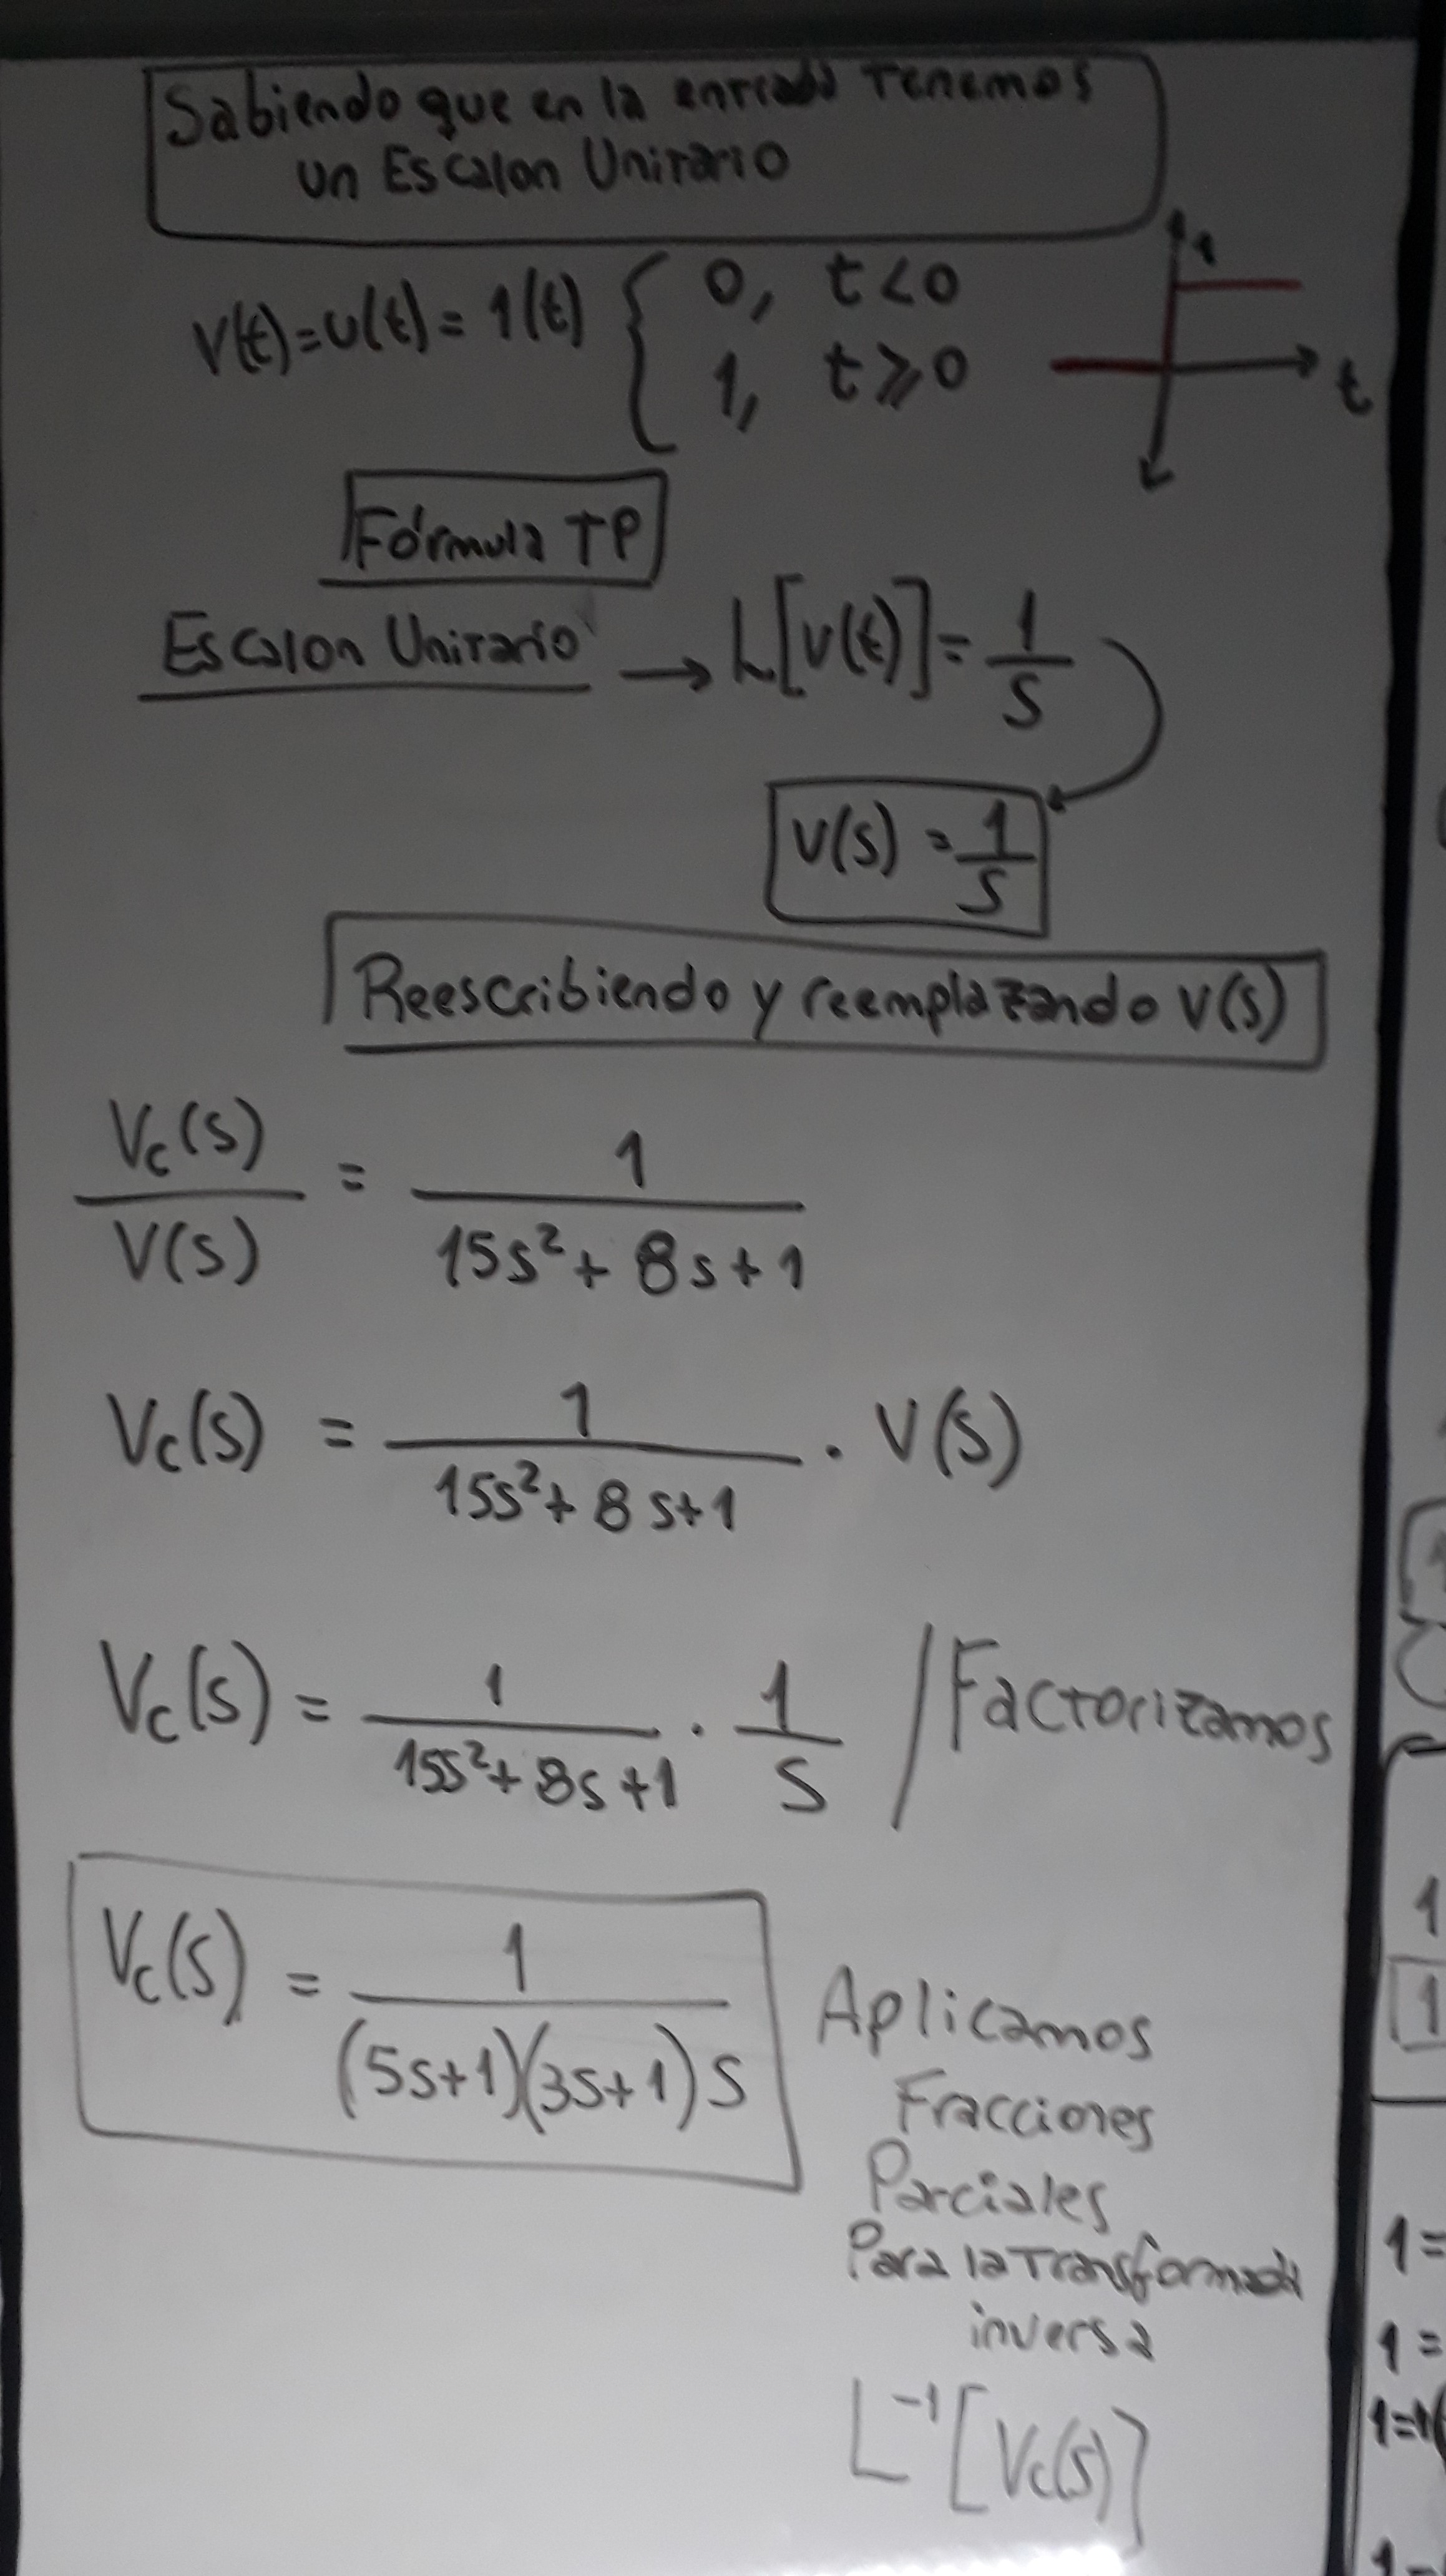 Sabiendo que en la entrada tenemos
un Escalon Unitario
V(t)=u(t)= 1(t) { 0, t<0
1, t≥0
1
t
Fórmula TP
Escalon Unitario → L[v(t)]= 1/S
V(S) = 1/S
Reescribiendo y reemplazando V(S)
Vc(S)/V(S) = 1/(15s²+ 8s+1)
Vc(S) = 1/(15s²+ 8s+1) · V(S)
Vc(S) = 1/(15s²+ 8s+1) · 1/S / Factorizamos
Vc(S) = 1/((5s+1)(3s+1)S)
Aplicamos
Fracciones
Parciales
Para la Transformada
inversa
L⁻¹[Vc(S)]
1
1
1=
1=
1=1(